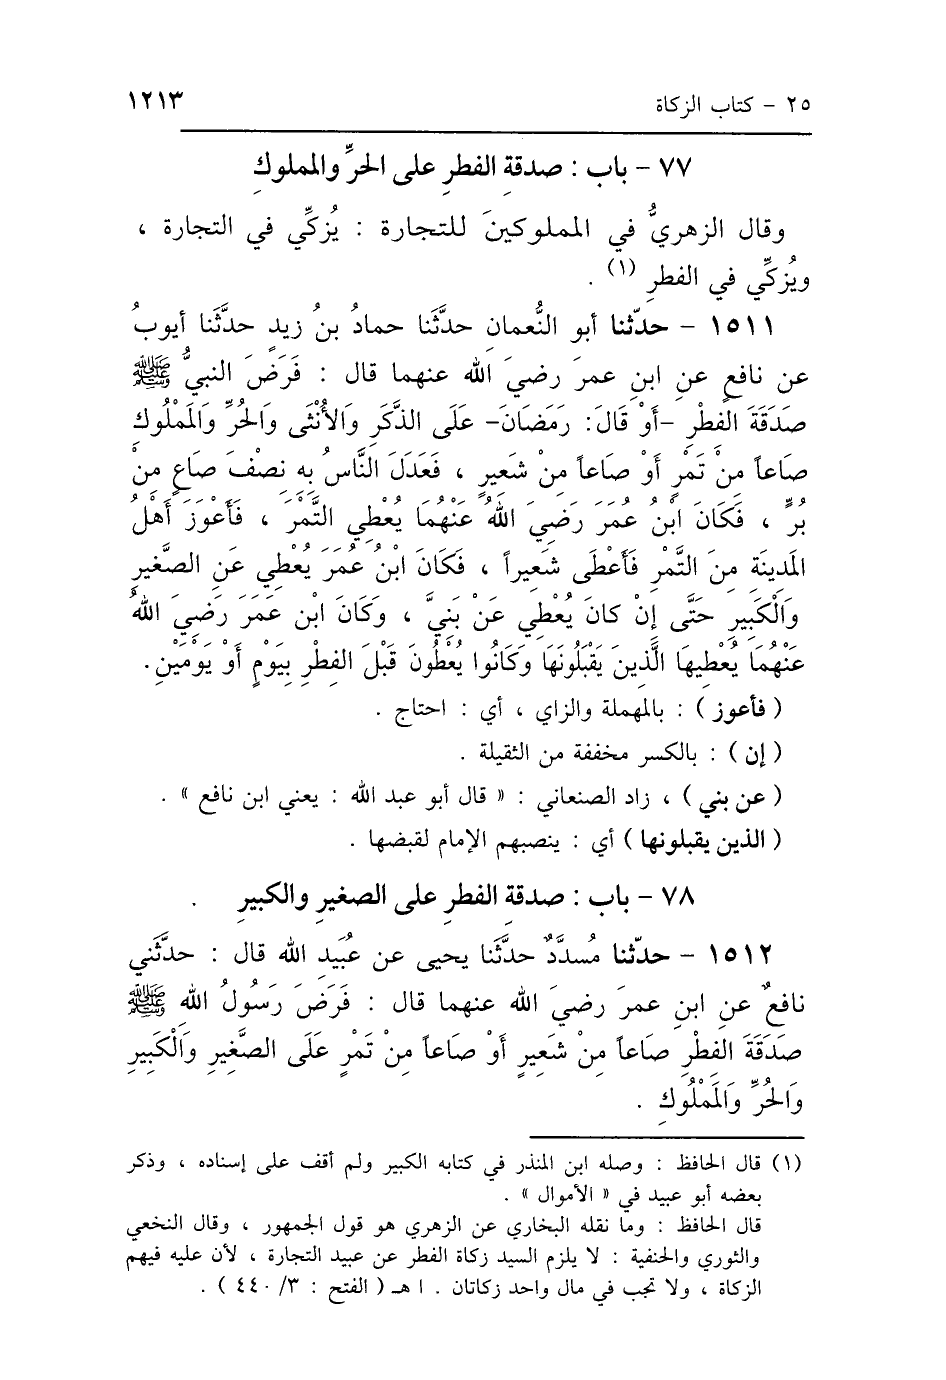 ٢٥ - كتاب الزكاة ١٢١٣
٧٧ - باب : صدقةِ الفطرِ على الحرِّ والمملوكِ
وقال الزهريُّ في المملوكينَ للتجارة : يُزكِّي في التجارة ،
ويُزكِّي في الفطرِ (١) .
١٥١١ - حدّثنا أبو النُّعمانِ حدَّثَنا حمادُ بنُ زيدٍ حدَّثَنا أيوبُ
عن نافعٍ عنِ ابنِ عمرَ رضيَ الله عنهما قال : فَرَضَ النبيُّ ﷺ
صَدَقَةَ الفطْرِ -أَوْ قَالَ: رَمَضَانَ- عَلَى الذَّكَرِ وَالأُنْثَى وَالحُرِّ وَالمَمْلُوكِ
صَاعاً مِنْ تَمْرٍ أَوْ صَاعاً مِنْ شَعِيرٍ ، فَعَدَلَ النَّاسُ به نصْفَ صَاعٍ مِنْ
بُرٍّ ، فَكَانَ ابْنُ عُمَرَ رَضِيَ اللهُ عَنْهُمَا يُعْطِي التَّمْرَ ، فَأَعْوَزَ أَهْلُ
المَدِينَةِ مِنَ التَّمْرِ فَأَعْطَى شَعِيراً ، فكَانَ ابْنُ عُمَرَ يُعْطِي عَنِ الصَّغيرِ
وَالْكَبِيرِ حَتَّى إِنْ كانَ يُعْطِي عَنْ بَنِيَّ ، وَكَانَ ابْن عَمَرَ رَضِيَ اللهُ
عَنْهُمَا يُعْطِيهَا الَّذِينَ يَقْبَلُونَهَا وَكَانُوا يُعْطُونَ قَبْلَ الفِطْرِ بِيَوْمٍ أَوْ يَوْمَيْنِ.
( فأعوز ) : بالمهملة والزاي ، أي : احتاج .
( إن ) : بالكسر مخففة من الثقيلة .
( عن بني ) ، زاد الصنعاني : « قال أبو عبد الله : يعني ابن نافع » .
( الذين يقبلونها ) أي : ينصبهم الإمام لقبضها .
٧٨ - باب : صدقةِ الفطرِ على الصغيرِ والكبيرِ .
١٥١٢ - حدّثنا مُسدَّدٌ حدَّثَنا يحيى عن عُبَيدِ الله قال : حدَّثَني
نافعٌ عنِ ابنِ عمرَ رضيَ الله عنهما قال : فَرَضَ رَسُولُ اللهِ ﷺ
صَدَقَةَ الفِطْرِ صَاعاً مِنْ شَعِيرٍ أَوْ صَاعاً مِنْ تَمْرٍ عَلَى الصَّغِيرِ وَالْكَبِيرِ
وَالحُرِّ وَالمَمْلُوكِ .
(١) قال الحافظ : وصله ابن المنذر في كتابه الكبير ولم أقف على إسناده ، وذكر
بعضه أبو عبيد في « الأموال » .
قال الحافظ : وما نقله البخاري عن الزهري هو قول الجمهور ، وقال النخعي
والثوري والحنفية : لا يلزم السيد زكاة الفطر عن عبيد التجارة ، لأن عليه فيهم
الزكاة ، ولا تجب في مال واحد زكاتان . اهـ ( الفتح : ٣/ ٤٤٠ ) .